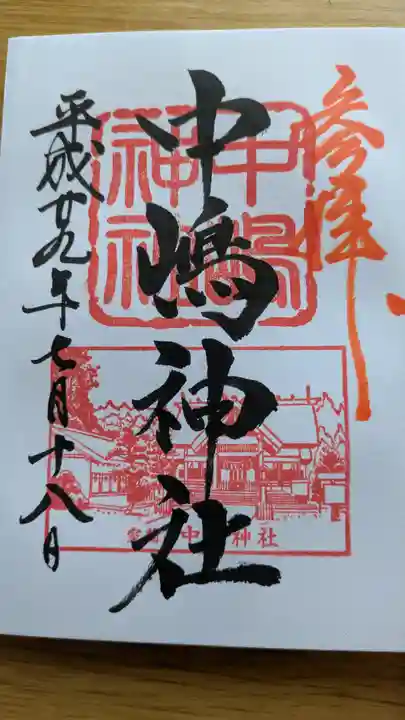 参拝
中嶋神社
中嶋神社
平成廿九年七月十八日
中嶋神社